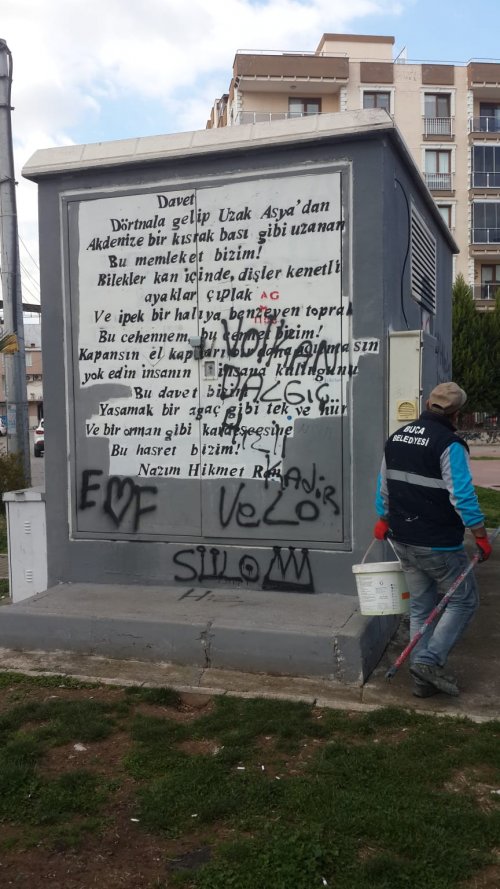 Davet
Dörtnala gelip Uzak Asya'dan
Akdenize bir kısrak başı gibi uzanan
Bu memleket bizim!
Bilekler kan içinde, dişler kenetli
ayaklar çıplak
Ve ipek bir halıya benzeyen toprak
Bu cehennem, bu cennet bizim!
Kapansın el kapıları bir daha açılmasın
yok edin insanın insana kulluğunu
Bu davet bizim
Yaşamak bir ağaç gibi tek ve hür
Ve bir orman gibi kardeşçesine
Bu hasret bizim!
Nazım Hikmet Ran
AG
E F
KADİR
VELO
SİLO
BUCA
BELEDİYESİ